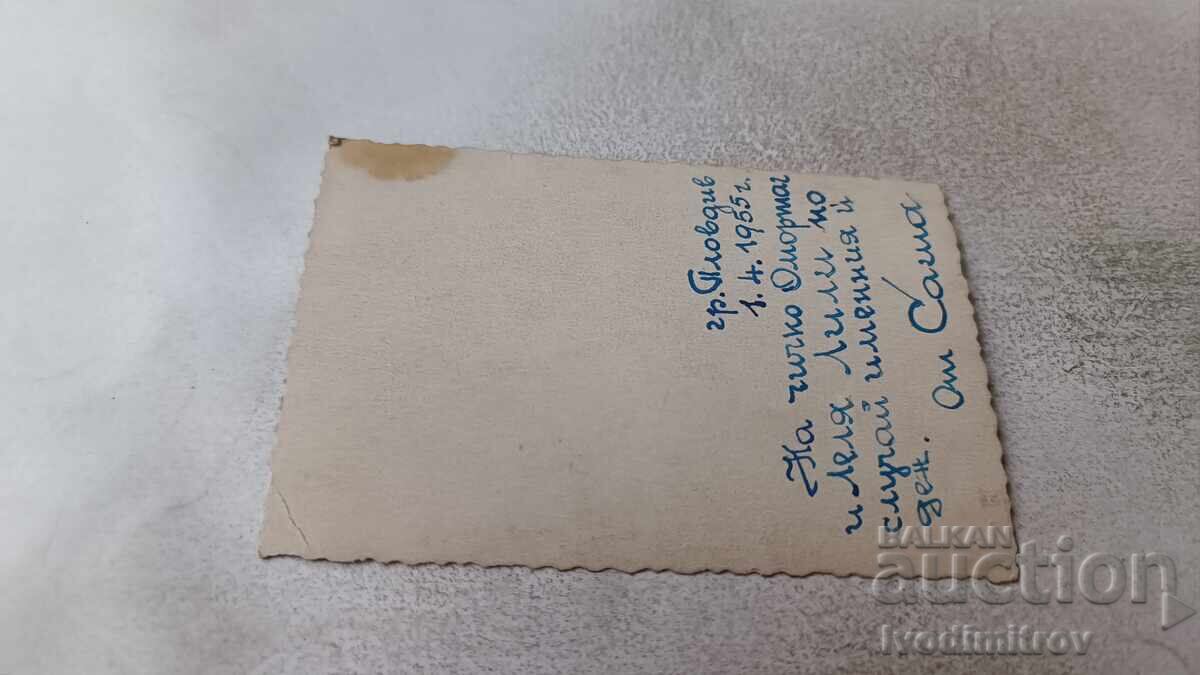 гр. Пловдив
1. 4. 1955 г.
На чичко Омортаг
и леля Лили по
случай имения ѝ
ден.
от Сашо
BALKAN
auction
Ivodimitrov